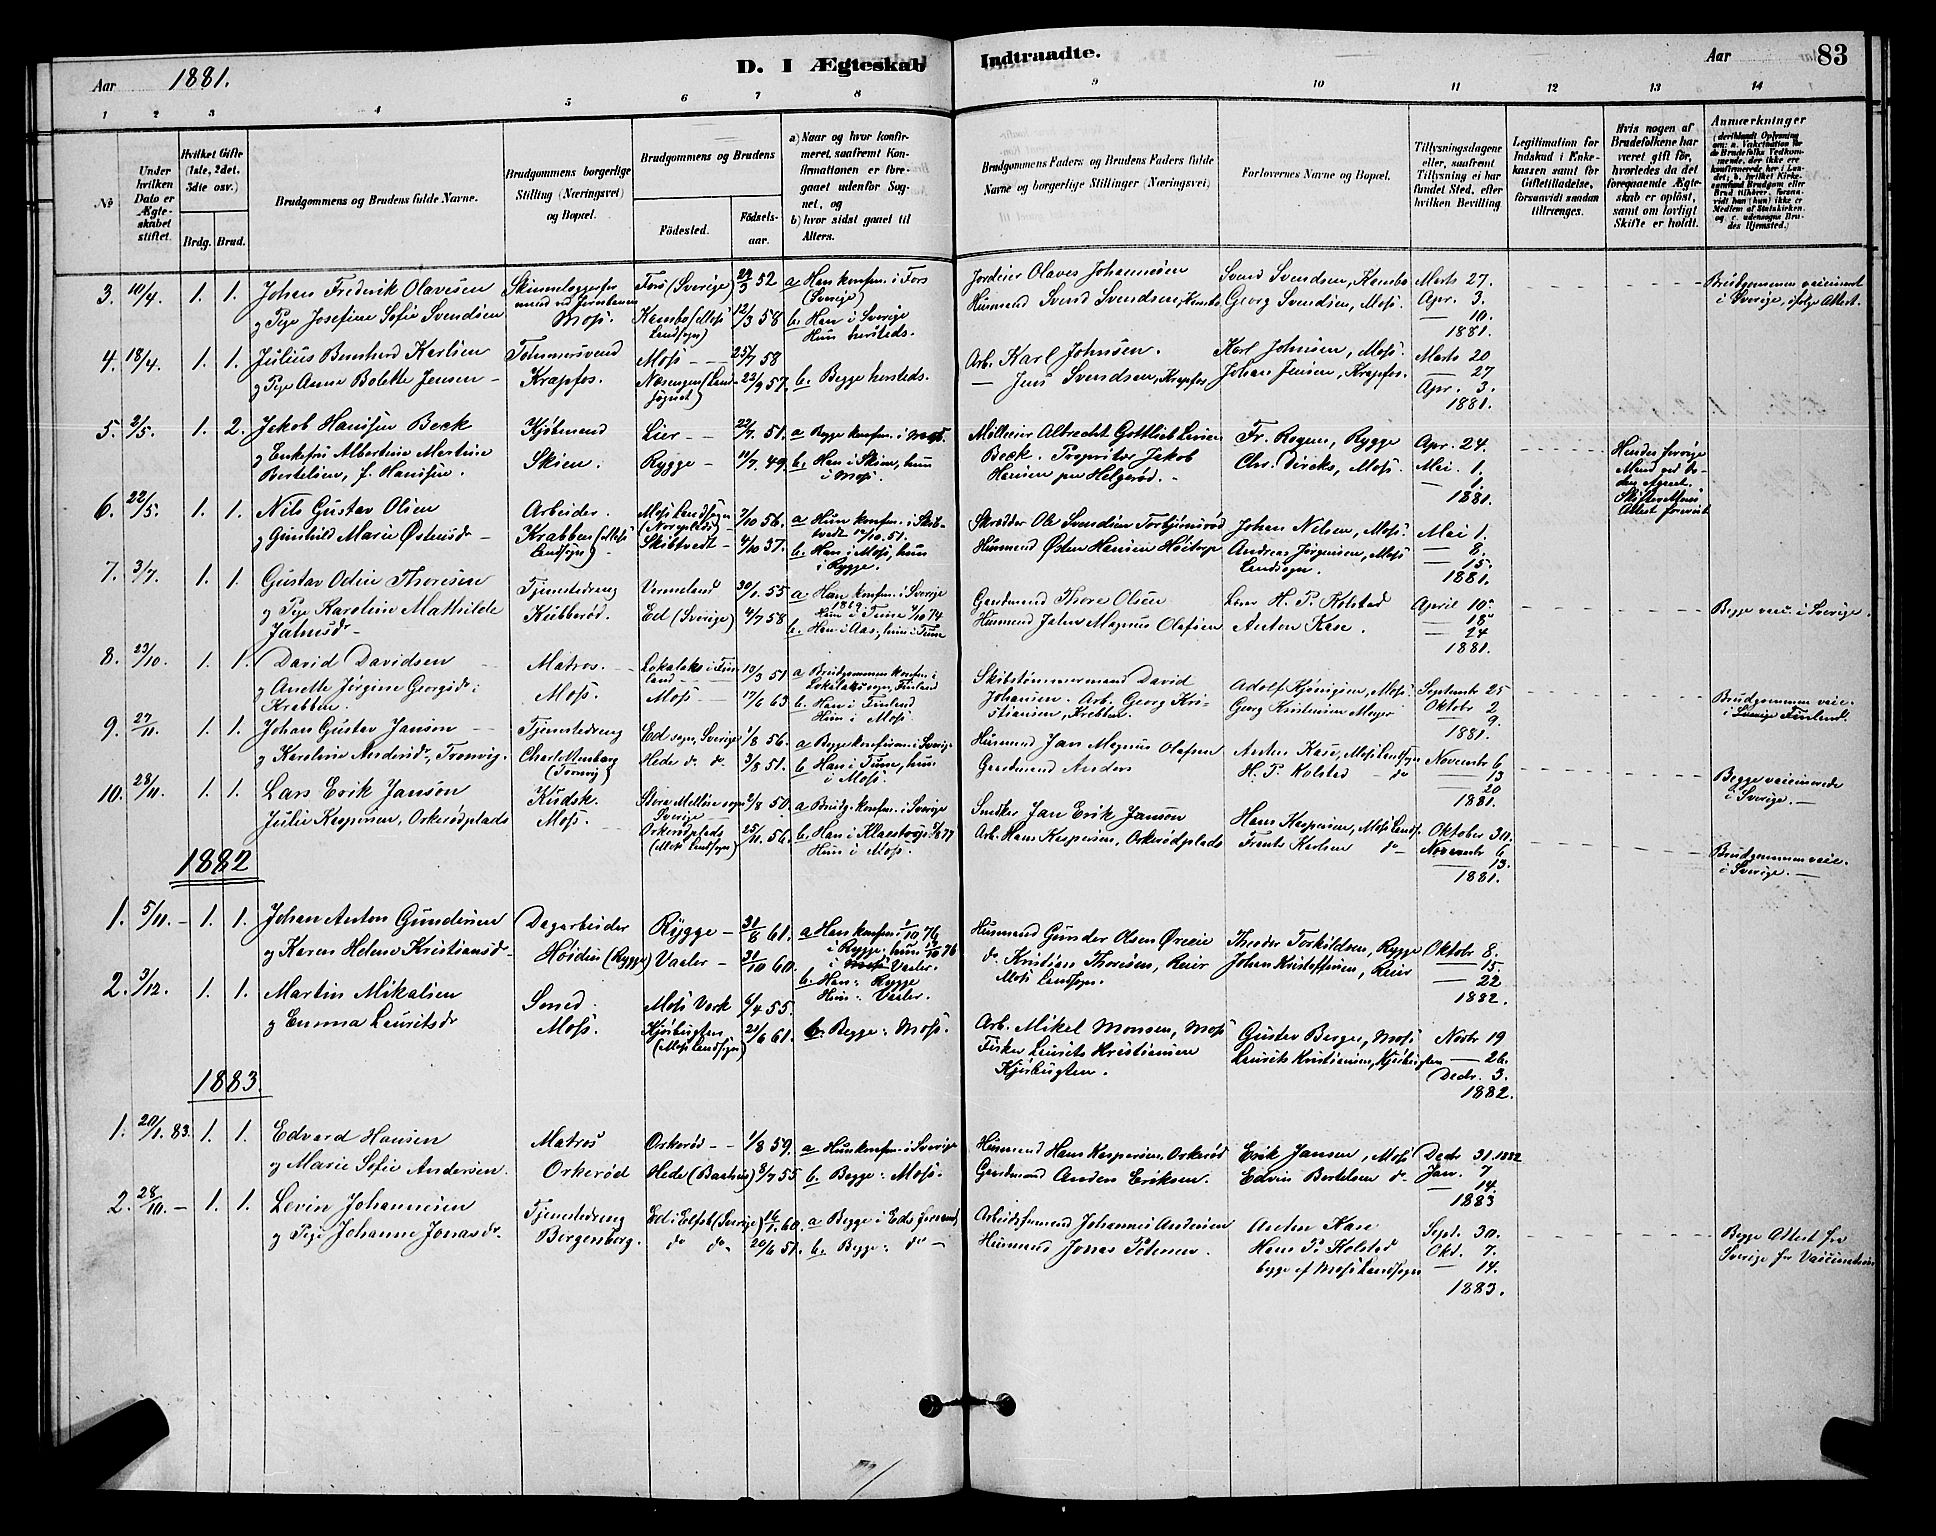 D. I Ægteskab Indtraadte.
83
Aar 1881.
Aar
1 2 3 4 5 6 7 8 9 10 11 12 13 14
No
Under hvilken Dato er Ægteskabet stiftet.
Hvilket Gifte (1ste, 2det, 3die osv.)
Brdg. Brud.
Brudgommens og Brudens fulde Navne.
Brudgommens borgerlige Stilling (Næringsvei) og Bopæl.
Brudgommens og Brudens
Fødested.
Fødselsaar.
a) Naar og hvor konfirmeret, saafremt Konfirmationen er foregaaet udenfor Sognet, og
b) hvor sidst gaaet til Alters.
Brudgommens Faders og Brudens Faders fulde Navne og borgerlige Stillinger (Næringsvei)
Forlovernes Navne og Bopæl.
Tillysningsdagene eller, saafremt Tillysning ei har fundet Sted, efter hvilken Bevilling
Legitimation for Indskud i Enkekassen samt for Giftetilladelse, forsaavidt saadan tiltrænges.
Hvis nogen af Brudefolkene har været gift før, hvorledes da det foregaaende Ægteskab er opløst, samt om lovligt Skifte er holdt.
Anmærkninger
3. 10/4. 1. 1.
Johan Frederik Olavesen
og Pige Josefine Sofie Svendsen
Moss.
Fors (Sverige) 24/3 52
Kambo (Moss Landsogn) 12/3 58
a Han konfm. i Fors (Sverige)
b. Han i Sverige
Hun hersteds.
Jordeier Olaves Johannesen
Husmand Svend Svendsen, Kambo
Svend Svendsen, Kambo
Georg Svendsen, Moss.
Marts 27.
Apr. 3.
— 10.
1881.
Brudgommen vaccineret
i Sverige, ifølge Attest.
4. 18/4. 1. 1.
Julius Bernhard Karlsen
og Pige Anne Bolette Jensen
Tømmersvend
Krapfos.
Moss 25/7 58
22/9 57.
b. Begge hersteds.
Arb. Karl Johnsen.
— Jens Svendsen, Krapfos
Karl Johnsen, Moss.
Johan Jensen, Krapfos.
Marts 20
— 27
Apr. 3.
1881.
5. 2/5. 1. 2.
Jakob Hansen Beck
og Enkefru Albertine Martine
Bertelsen, f. Hansen.
Kjøbmand
Skien.
Lier 22/7. 51.
Rygge 11/7. 49.
a Begge konfm. i Moss.
b. Han i Skien, hun
i Moss.
Mølleeier Albrecht Gottlieb
Beck. Proprietær Jakob
Hansen paa Helgerød.
Fr. Rogne, Rygge
Chr. Dircks, Moss.
Apr. 24.
Mai. 1.
— 1.
1881.
Hendes forrige
Mand ved
6. 22/5. 1. 1.
Nils Gustav Olsen
og Gunhild Marie Østensdr
Arbeider.
Krabben (Moss
Landsogn)
Moss Landsogn 7/10 56.
Skibtvedt 4/10 37.
a Hun konfm. i Skibtvedt 12/10. 51.
b. Han i Moss, hun
i Rygge.
Skrædder Ole Svendsen Torbjørnsrød
Husmand Østen Hansen
Johan Nilsen, Moss.
Andreas Jørgensen, Moss
Landsogn.
Mai 1.
— 8.
— 15.
1881.
7. 3/7. 1. 1.
Gustav Odin Thoresen
og Pige Karoline Mathilde
Tjenestedreng
Kubberød.
Vermeland 30/1. 55
Ed (Sverige) 4/7 58
a Han konfm. i Sverige
1869
Hun i Tune 4/10 74
b. Han i Aas, hun i Tune
Gaardmand Thore Olsen
Husmand Jahn Magnus Olafsen
Lærer H. P. Kolstad
Anton Kase.
April 10.
— 18
— 24
1881.
Begge vacc. i Sverige.
8. 23/10. 1. 1.
David Davidsen
og Anette Jørgine Georgsdr.
Krabben.
Matros.
Moss.
Lokalaks i Finland 10/3 51
Moss 17/6 63
a Brudgommen konfm. i
Lokalaks sogn, Finland
b. Han i Finland
Hun i Moss.
Skibstømmermand David
Johansen. Arb. Georg Kristiansen, Krabben.
Adolf Kjønigsen, Moss.
Georg Kristensen Moger
Septembr 25
Oktobr 2
— 9.
1881.
Brudgommen vacc.
i Sverige Finland.
9. 27/11. 1. 1.
Johan Gustav Janson
og Karoline Andersdr., Tronvig.
Tjenestedreng
Charlottenborg
(Tronvig)
Ed sogn, Sverige 1/8 56.
Hede do. do. 3/8 51.
a Begge konfirm. i Sverige
b. Han i Tune, hun
i Moss.
Husmand Jan Magnus Olafsen
Gaardmand Anders
Anton Kase, Moss Landsogn
H. P. Kolstad — do
Novembr 6
— 13
— 20
1881.
Begge vaccinerede
i Sverige.
10. 28/11. 1. 1.
Lars Erik Janson
Julie Kaspersen, Orkerødplads
Kudsk.
Moss.
Sverige 2/8 50.
Orkerødplads
(Moss Landsogn) 25/11. 56.
a Brudg. konfm. i Sverige
Hun i Moss.
Smeker Jan Erik Janson
Arb. Hans Kaspersen, Orkerødplads
Hans Kaspersen, Moss Lands.
Frants Karlsen do
Oktober 30.
Novembr 6
— 13.
1881.
Brudgommen vacc.
i Sverige.
1882
1. 5/11. 1. 1.
Johan Anton Gundersen
og Karen Helene Kristiansdr
Dagarbeider
Høiden (Rygge)
Rygge 31/8 61.
Vaaler 31/10 60.
a Han konfm. 1/10 76
i Rygge, hun 1/10 76
i Moss Vaaler.
b. Han: Rygge
Hun: Vaaler.
Husmand Gunder Olsen Ørecie
do. Kristian Thoresen, Reier
Moss Landsogn.
Theodor Torkildsen, Rygge
Johan Kristoffersen, Reier
Oktobr 8.
— 15.
— 22
1882.
2. 3/12. 1. 1.
Martin Mikalsen
og Emma Lauritsdr
Moss.
Moss Værk 6/4 55.
Kjørbugten
(Moss Landsogn) 21/6 61.
b. Begge: Moss.
Arb. Mikal Monsen, Moss
Fisker Laurits Kristiansen
Kjørbugten.
Gustav Berger, Moss
Laurits Kristiansen, Kjørbugten
Novbr 19
— 26.
Decbr. 3.
1882.
1883.
1. 20/1. 83. 1. 1.
Edvard Hansen
og Marie Sofie Andersen.
Matros
Orkerød
Orkerød 1/8 59.
Hede (Baahus) 8/7 55
a Hun konfm. i Sverige
b. Begge: Moss.
Husmand Hans Kaspersen, Orkerød
Gaardmand Anders Eriksen.
Erik Jansen, Moss
Edvin Bertelsen do.
Decbr 31. 1882
Jan. 7
— 14.
1883
2. 28/10. — 1. 1.
Levin Johannesen
og Pige Johanne Jonasdr.
Tjenestedreng
Borgensborg.
Ed i Elfsb (Sverige) 16/1. 60.
do do 20/6 51.
a Begge i Eds
b. Begge: do
Arbeidsformand Johannes Andersen
Husmand Jonas Petersen.
Anton Kase
Hans P. Kolstad
begge af Moss Landsogn
Sept. 30.
Okt. 7.
— 14.
1883.
Begge Attest fra
Sverige for Vaccination